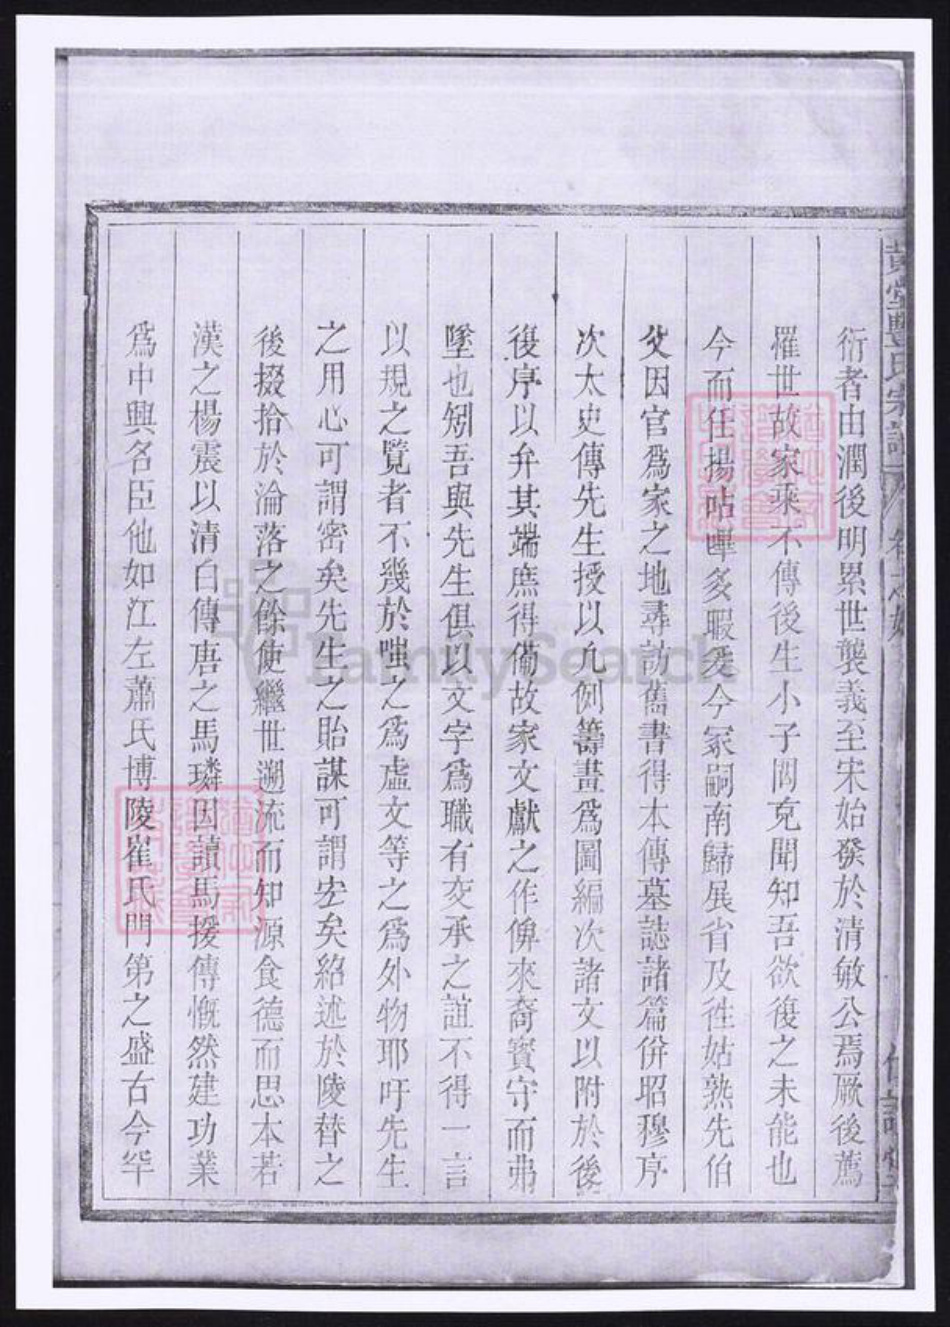 黃堂豐氏宗譜
衍者由潤後明累世襲義至宋始發於清敏公焉厥後薦
罹世故家乘不傳後生小子罔克聞知吾欲復之未能也
今而任揚呫嗶多暇爰今冢嗣南歸展省及徃姑熟先伯
父因官爲家之地尋訪舊書得本傳墓誌諸篇併昭穆序
次太史傳先生授以凡例籌畫爲圖編次諸文以附於後
復序以弁其端庶得備故家文獻之作俾來裔寳守而弗
墜也矧吾與先生俱以文字爲職有交承之誼不得一言
以規之覽者不幾於嗤之爲虛文等之爲外物耶吁先生
之用心可謂密矣先生之貽謀可謂宏矣紹述於陵替之
後掇拾於淪落之餘使繼世溯流而知源食德而思本若
漢之楊震以清白傳唐之馬璘因讀馬援傳慨然建功業
爲中興名臣他如江左蕭氏博陵崔氏門第之盛古今罕
FamilySearch